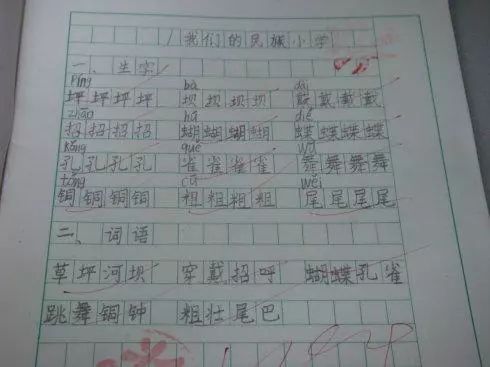 1 我们的民族小学
一、生字
píng bà dài
坪坪坪坪 坝坝坝坝 戴戴戴戴
zhāo hú dié
招招招招 蝴蝴蝴蝴 蝶蝶蝶蝶
kǒng què wǔ
孔孔孔孔 雀雀雀雀 舞舞舞舞
tóng cū wěi
铜铜铜铜 粗粗粗粗 尾尾尾尾
二、词语
草坪河坝 穿戴招呼 蝴蝶孔雀
跳舞铜钟 粗壮尾巴